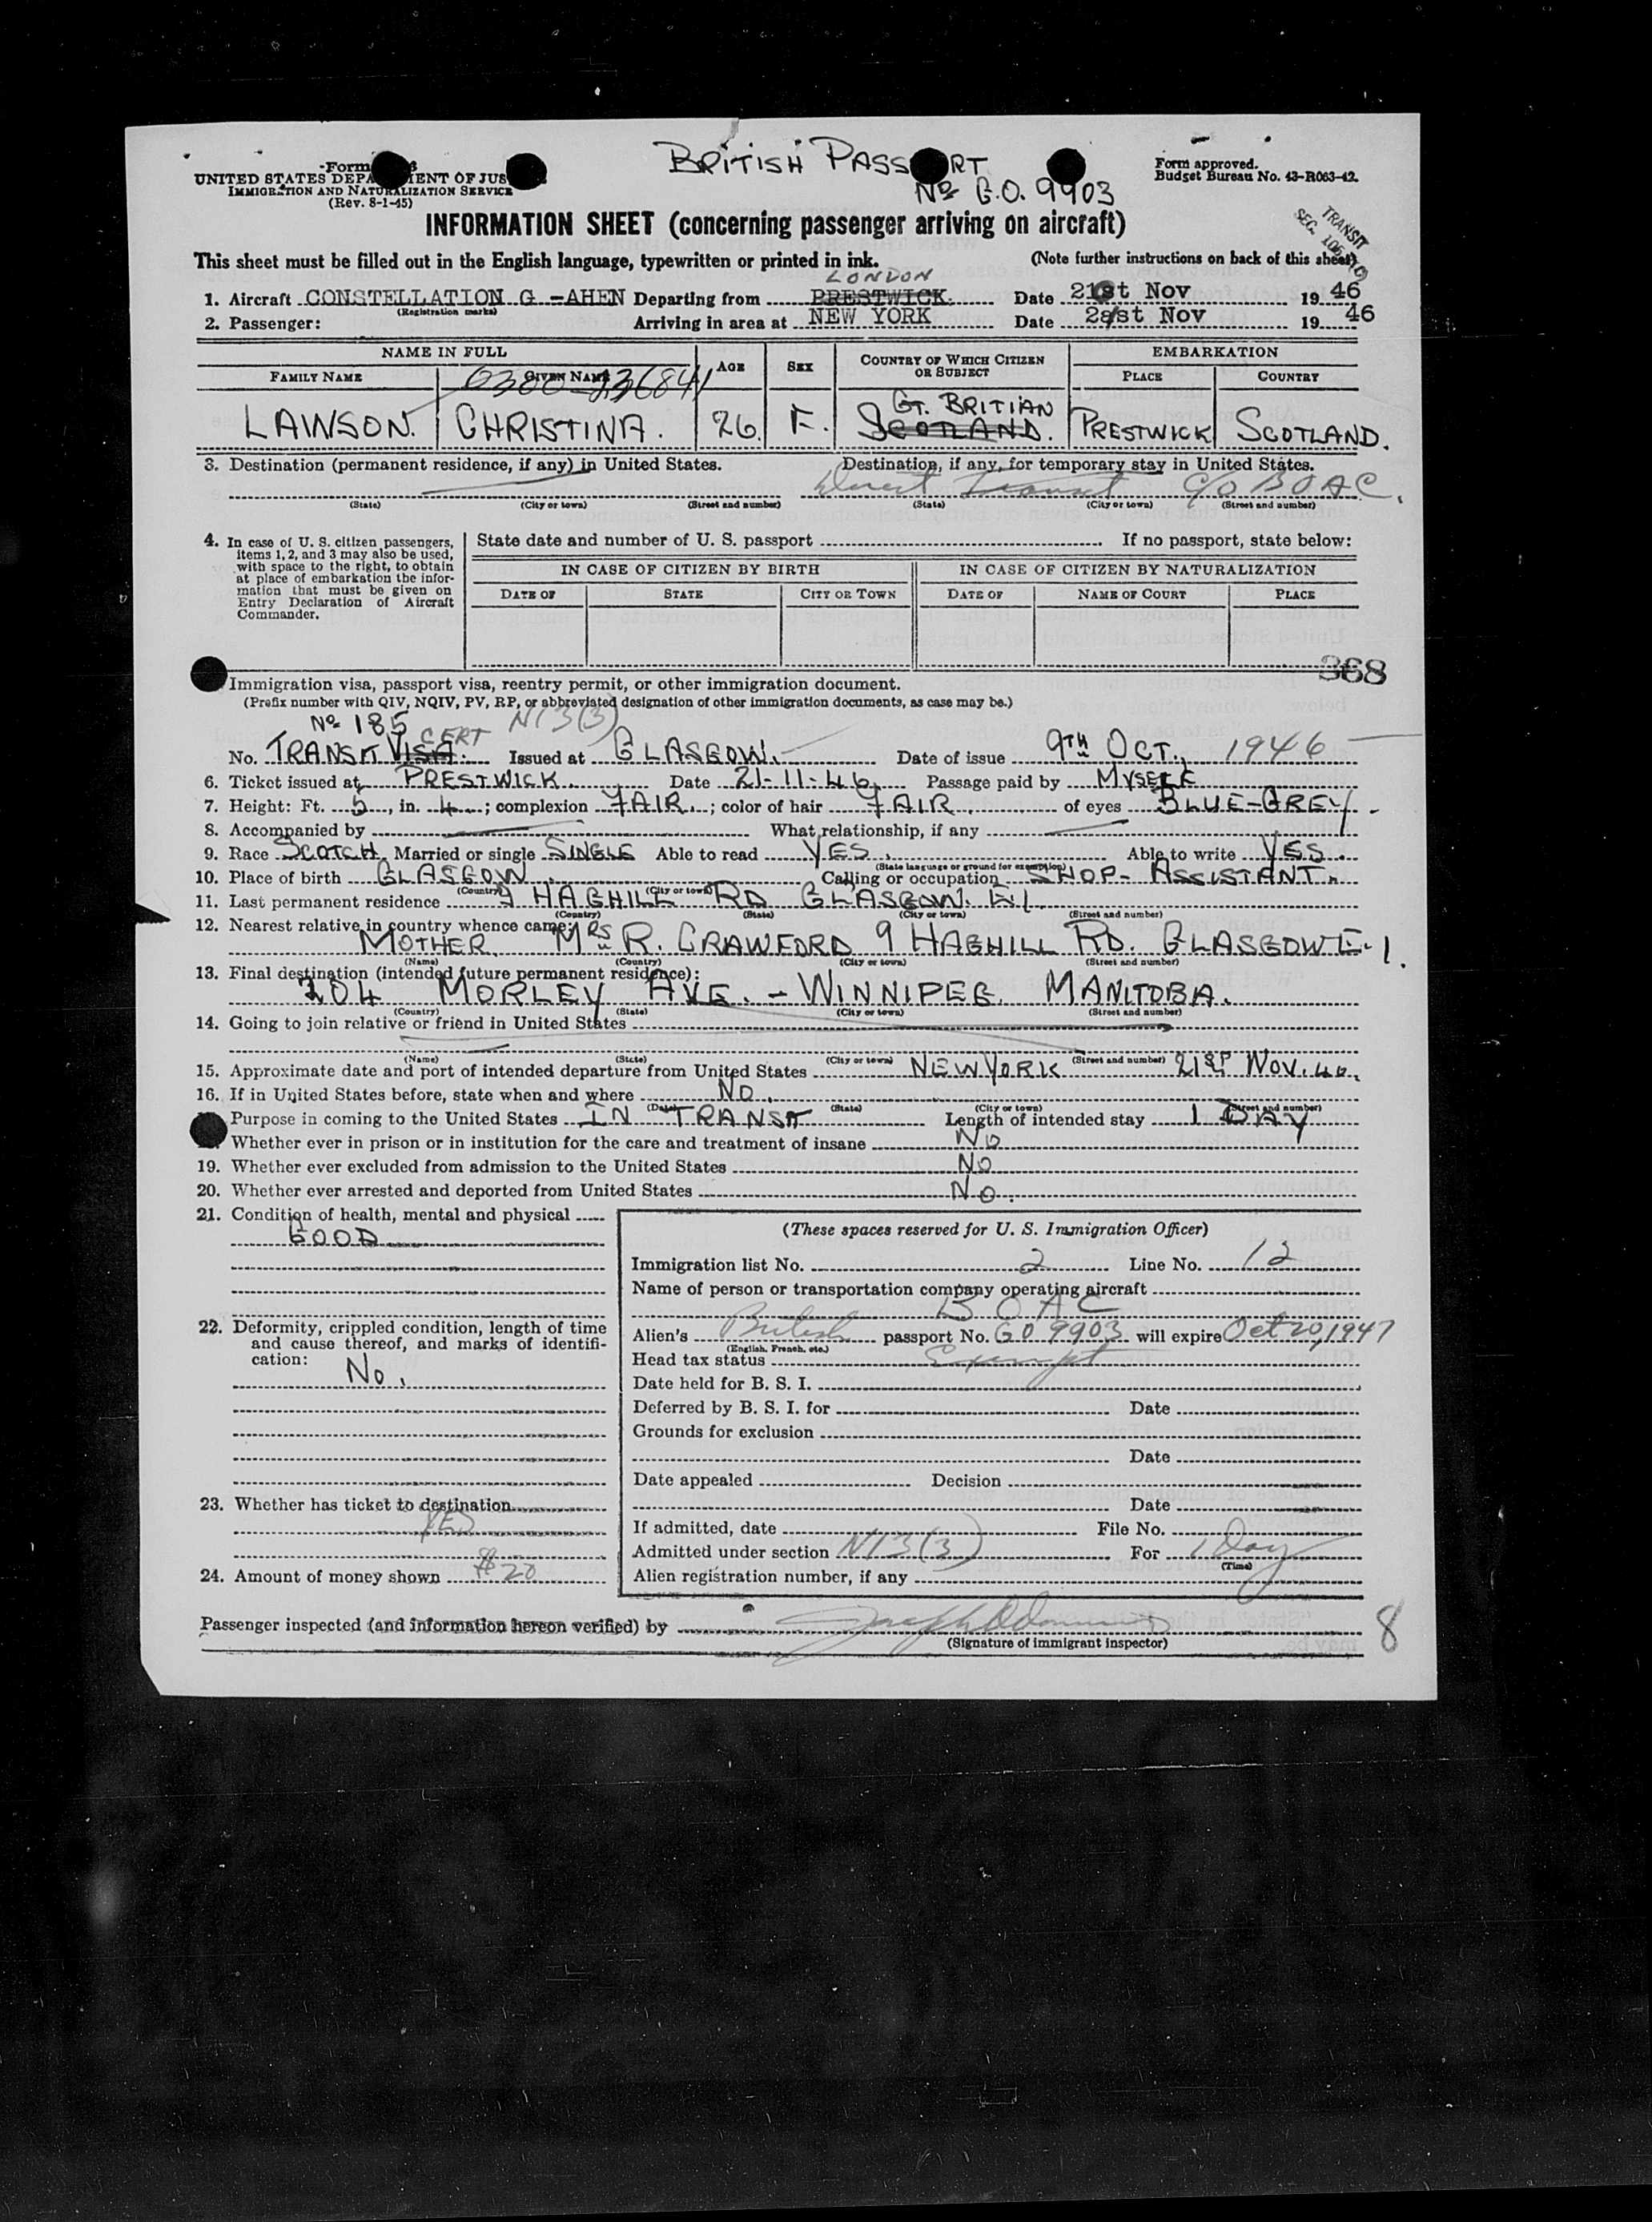 BRITISH PASSPORT
Nº G.O. 9903
Form
UNITED STATES DEPARTMENT OF JUS
IMMIGRATION AND NATURALIZATION SERVICE
(Rev. 8-1-45)
Form approved.
Budget Bureau No. 43-R063-42.
INFORMATION SHEET (concerning passenger arriving on aircraft)
TRANSIT
SEC.
This sheet must be filled out in the English language, typewritten or printed in ink. (Note further instructions on back of this sheet)
LONDON
1. Aircraft CONSTELLATION G -AHEN Departing from PRESTWICK Date 21st Nov 1946
(Registration marks)
2. Passenger: Arriving in area at NEW YORK Date Nov 1946
NAME IN FULL AGE SEX COUNTRY OF WHICH CITIZEN OR SUBJECT EMBARKATION
FAMILY NAME GIVEN NAME PLACE COUNTRY
0300-236841
GT. BRITIAN
LAWSON. CHRISTINA. 26. F. SCOTLAND. PRESTWICK SCOTLAND.
3. Destination (permanent residence, if any) in United States. Destination, if any, for temporary stay in United States.
Direct Transit C/O BOAC.
(State) (City or town) (Street and number) (State) (City or town) (Street and number)
4. In case of U. S. citizen passengers, items 1, 2, and 3 may also be used, with space to the right, to obtain at place of embarkation the information that must be given on Entry Declaration of Aircraft Commander.
State date and number of U. S. passport If no passport, state below:
IN CASE OF CITIZEN BY BIRTH IN CASE OF CITIZEN BY NATURALIZATION
DATE OF STATE CITY OR TOWN DATE OF NAME OF COURT PLACE
368
Immigration visa, passport visa, reentry permit, or other immigration document.
(Prefix number with QIV, NQIV, PV, RP, or abbreviated designation of other immigration documents, as case may be.)
Nº 185 CERT N13(3)
No. TRANSIT VISA. Issued at GLASGOW. Date of issue 9TH OCT., 1946
6. Ticket issued at PRESTWICK. Date 21-11-46. Passage paid by MYSELF
7. Height: Ft. 5, in. 4; complexion FAIR.; color of hair FAIR. of eyes BLUE-GREY.
8. Accompanied by What relationship, if any
9. Race SCOTCH. Married or single SINGLE Able to read YES. Able to write YES.
(State language or ground for exemption)
10. Place of birth GLASGOW. Calling or occupation SHOP-ASSISTANT.
(Country) (City or town)
11. Last permanent residence 9 HAGHILL RD GLASGOW. E1.
(Country) (State) (City or town) (Street and number)
12. Nearest relative in country whence came:
MOTHER. MRS R. CRAWFORD 9 HAGHILL RD. GLASGOW E.1.
(Name) (Country) (City or town) (Street and number)
13. Final destination (intended future permanent residence):
204 MORLEY AVE. - WINNIPEG. MANITOBA.
(Country) (State) (City or town) (Street and number)
14. Going to join relative or friend in United States
(Name) (State) (City or town) (Street and number)
15. Approximate date and port of intended departure from United States NEW YORK 21ST NOV. 46.
16. If in United States before, state when and where NO.
(Date) (State) (City or town) (Street and number)
Purpose in coming to the United States IN TRANSIT Length of intended stay 1 DAY
Whether ever in prison or in institution for the care and treatment of insane NO
19. Whether ever excluded from admission to the United States NO
20. Whether ever arrested and deported from United States NO.
21. Condition of health, mental and physical
GOOD
22. Deformity, crippled condition, length of time and cause thereof, and marks of identification:
NO.
23. Whether has ticket to destination
YES
24. Amount of money shown $20
(These spaces reserved for U. S. Immigration Officer)
Immigration list No. 2 Line No. 12
Name of person or transportation company operating aircraft
BOAC
Alien's British passport No. GO 9903 will expire Oct 20, 1947
(English, French, etc.)
Head tax status Exempt
Date held for B. S. I.
Deferred by B. S. I. for Date
Grounds for exclusion
Date
Date appealed Decision
Date
If admitted, date File No.
Admitted under section N13(3) For 1 Day
(Time)
Alien registration number, if any
Passenger inspected (and information hereon verified) by
(Signature of immigrant inspector)
8